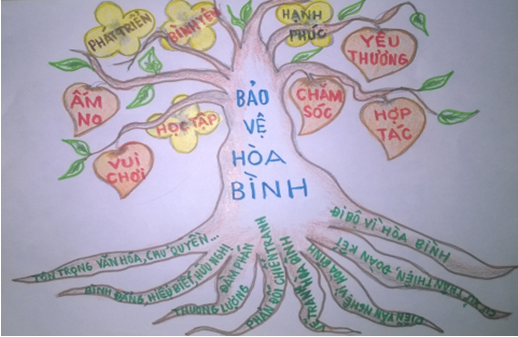 PHÁT TRIỂN
BÌNH YÊN
HẠNH
PHÚC
YÊU
THƯƠNG
ẤM
NO
HỌC TẬP
CHĂM
SÓC
HỢP
TÁC
VUI
CHƠI
BẢO
VỆ
HÒA
BÌNH
TÔN TRỌNG VĂN HÓA, CHỦ QUYỀN...
BÌNH ĐẲNG, HIỂU BIẾT, HỮU NGHỊ
THƯƠNG LƯỢNG
ĐÀM PHÁN
PHẢN ĐỐI CHIẾN TRANH
VẼ TRANH HÒA BÌNH
DIỄN VĂN NGHỆ VÌ HÒA BÌNH
THÂN THIỆN ĐOÀN KẾT
ĐI BỘ VÌ HÒA BÌNH